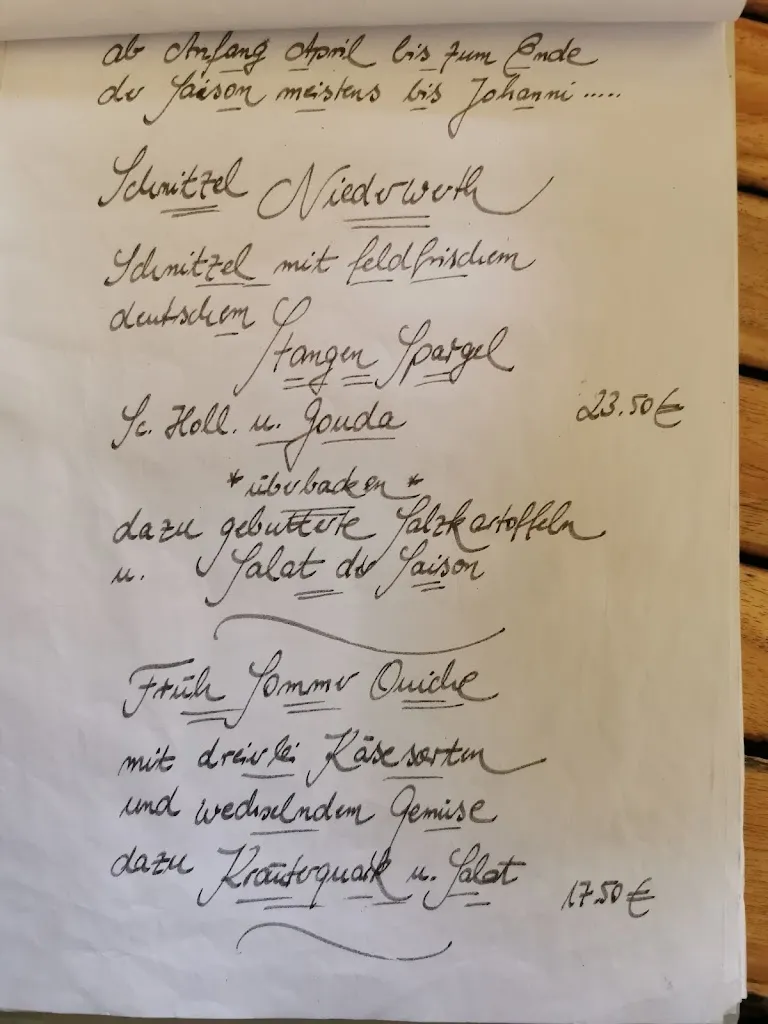 ab Anfang April bis zum Ende
der Saison meistens bis Johanni .....
Schnitzel Niederwerth
Schnitzel mit feldfrischem
deutschem
Stangen Spargel
Sc. Holl. u. Gouda
23.50 €
*überbacken*
dazu gebutterte Salzkartoffeln
u. Salat der Saison
Früh Sommer Quiche
mit dreierlei Käsesorten
und wechselndem Gemüse
dazu Kräuterquark u. Salat
17.50 €